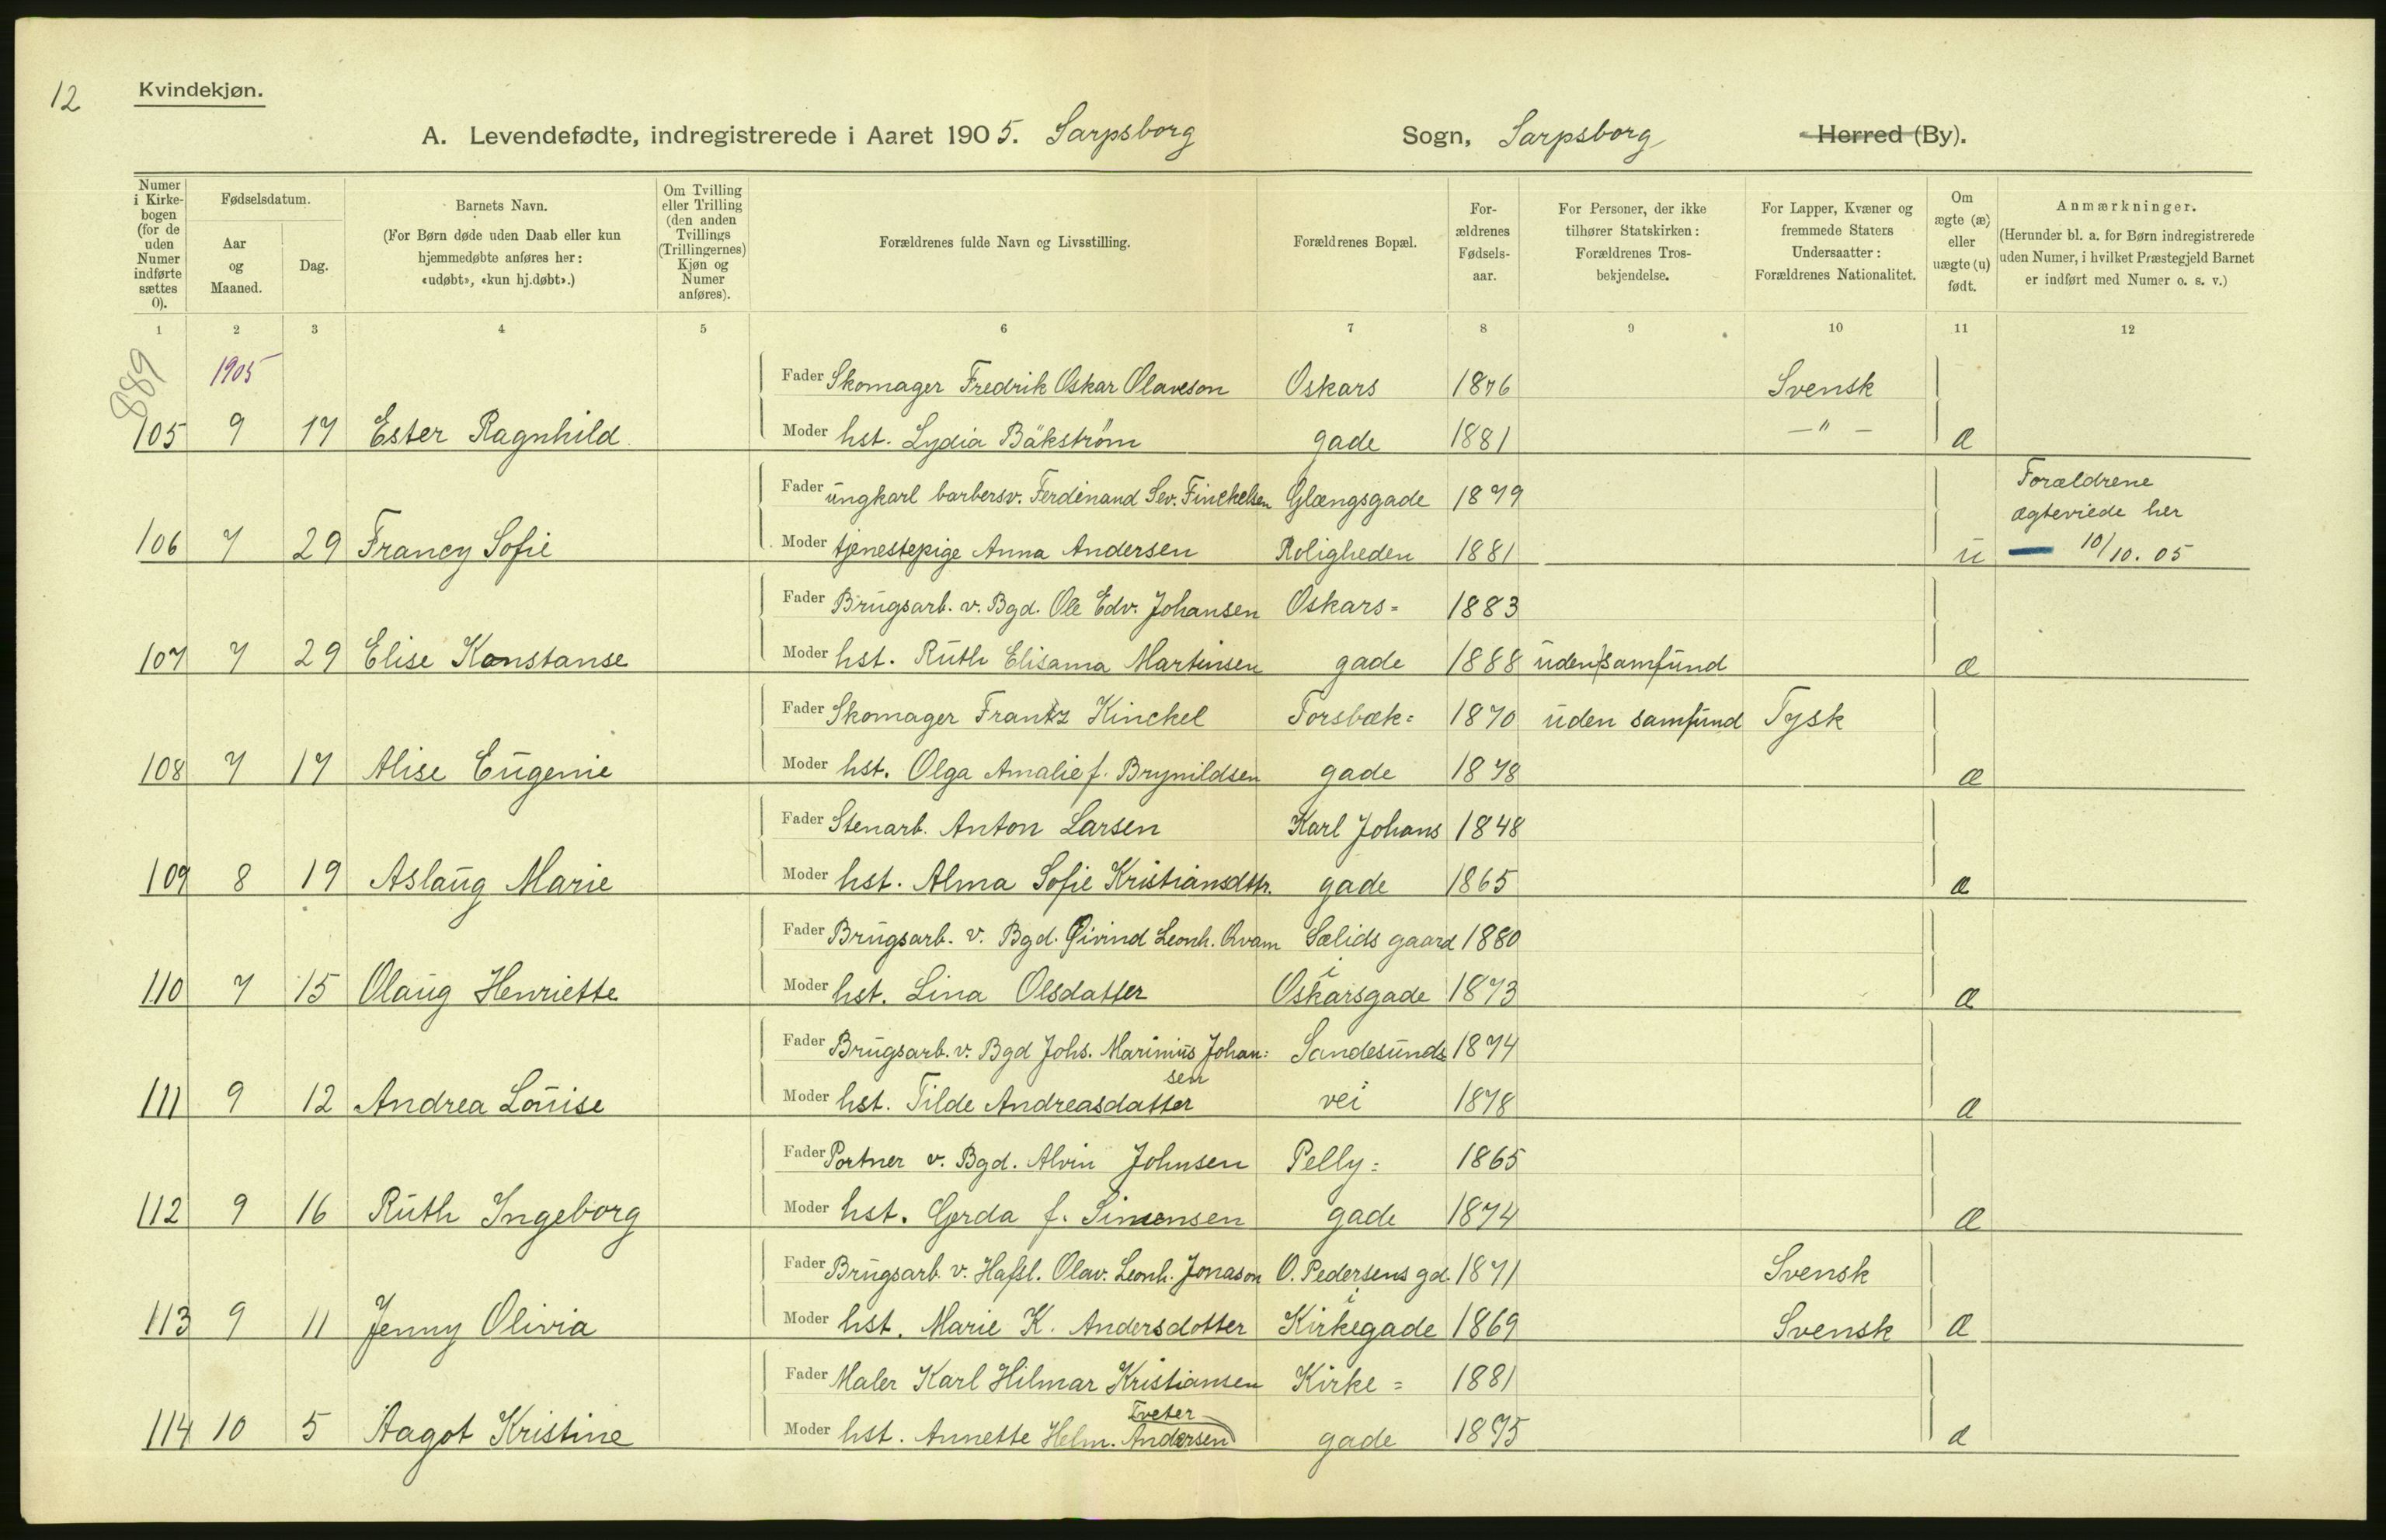 12
Kvindekjøn.
A. Levendefødte, indregistrerede i Aaret 1905. Sarpsborg Sogn, Sarpsborg Herred (By).
Numer i Kirkebogen (for de uden Numer indførte sættes 0).
Fødselsdatum.
Aar og Maaned.
Dag.
Barnets Navn.
(For Børn døde uden Daab eller kun hjemmedøbte anføres her: «udøbt», «kun hj.døbt».)
Om Tvilling eller Trilling (den anden Tvillings (Trillingernes) Kjøn og Numer anføres).
Forældrenes fulde Navn og Livsstilling.
Forældrenes Bopæl.
Forældrenes Fødselsaar.
For Personer, der ikke tilhører Statskirken: Forældrenes Trosbekjendelse.
For Lapper, Kvæner og fremmede Staters Undersaatter: Forældrenes Nationalitet.
Om ægte (æ) eller uægte (u) født.
Anmærkninger.
(Herunder bl. a. for Børn indregistrerede uden Numer, i hvilket Præstegjeld Barnet er indført med Numer o. s. v.)
1 2 3 4 5 6 7 8 9 10 11 12
889
1905
Fader Skomager Fredrik Oskar Olaveson Oskars 1876 Svensk
105 9 17 Ester Ragnhild Moder hst. Lydia Bäkström gade 1881 — " — æ
Fader ungkarl barbersv. Ferdinand Sev. Finckelsen Glængsgade 1879 Forældrene
ægteviede her
106 7 29 Francy Sofie Moder tjenestepige Anna Andersen Roligheden 1881 u 10/10. 05
Fader Brugsarb. v. Bgd. Ole Edv. Johansen Oskars= 1883
107 7 29 Elise Konstanse Moder hst. Ruth Elisama Martinsen gade 1888 uden samfund æ
Fader Skomager Frantz Kinckel Torsbæk= 1870 uden samfund Tysk
108 7 17 Alise Eugenie Moder hst. Olga Amalie f. Brynildsen gade 1878 æ
Fader Stenarb. Anton Larsen Karl Johans 1848
109 8 19 Aslaug Marie Moder hst. Alma Sofie Kristiansdtr. gade 1865 æ
Fader Brugsarb. v. Bgd. Øivind Leonh. Qvam Sælids gaard 1880
i
110 7 15 Olaug Henriette Moder hst. Lina Olsdatter Oskarsgade 1873 æ
Fader Brugsarb. v. Bgd Johs. Marinius Johan= Sandesunds= 1874
sen
111 9 12 Andrea Louise Moder hst. Tilde Andreasdatter vei 1878 æ
Fader Portner v. Bgd. Alvin Johnsen Pelly= 1865
112 9 16 Ruth Ingeborg Moder hst. Gerda f. Simensen gade 1874 æ
Fader Brugsarb. v. Hafsl. Olav. Leonh. Jonason O. Pedersens gd. 1871 Svensk
i
113 9 11 Jenny Olivia Moder hst. Marie K. Andersdotter Kirkegade 1869 Svensk æ
Fader Maler Karl Hilmar Kristiansen Kirke= 1881
Tveter
114 10 5 Aagot Kristine Moder hst. Annette Helm. Andersen gade 1875 æ